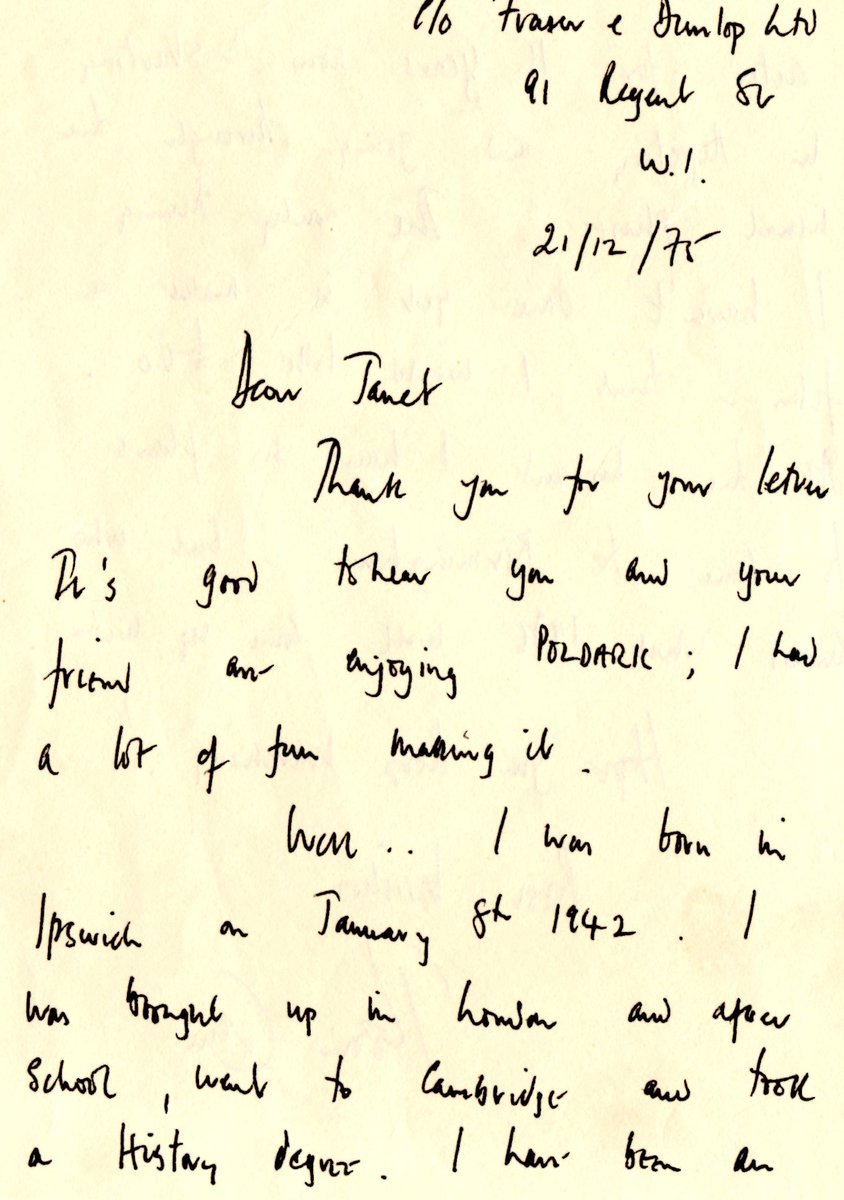 c/o Fraser & Dunlop Ltd
91 Regent St
W.1.
21/12/75
Dear Janet
Thank you for your letter
It's good to hear you and your
friend are enjoying POLDARK; I had
a lot of fun making it.
Well.. I was born in
Ipswich on January 8th 1942. I
was brought up in London and after
School, went to Cambridge and took
a History degree. I have been an